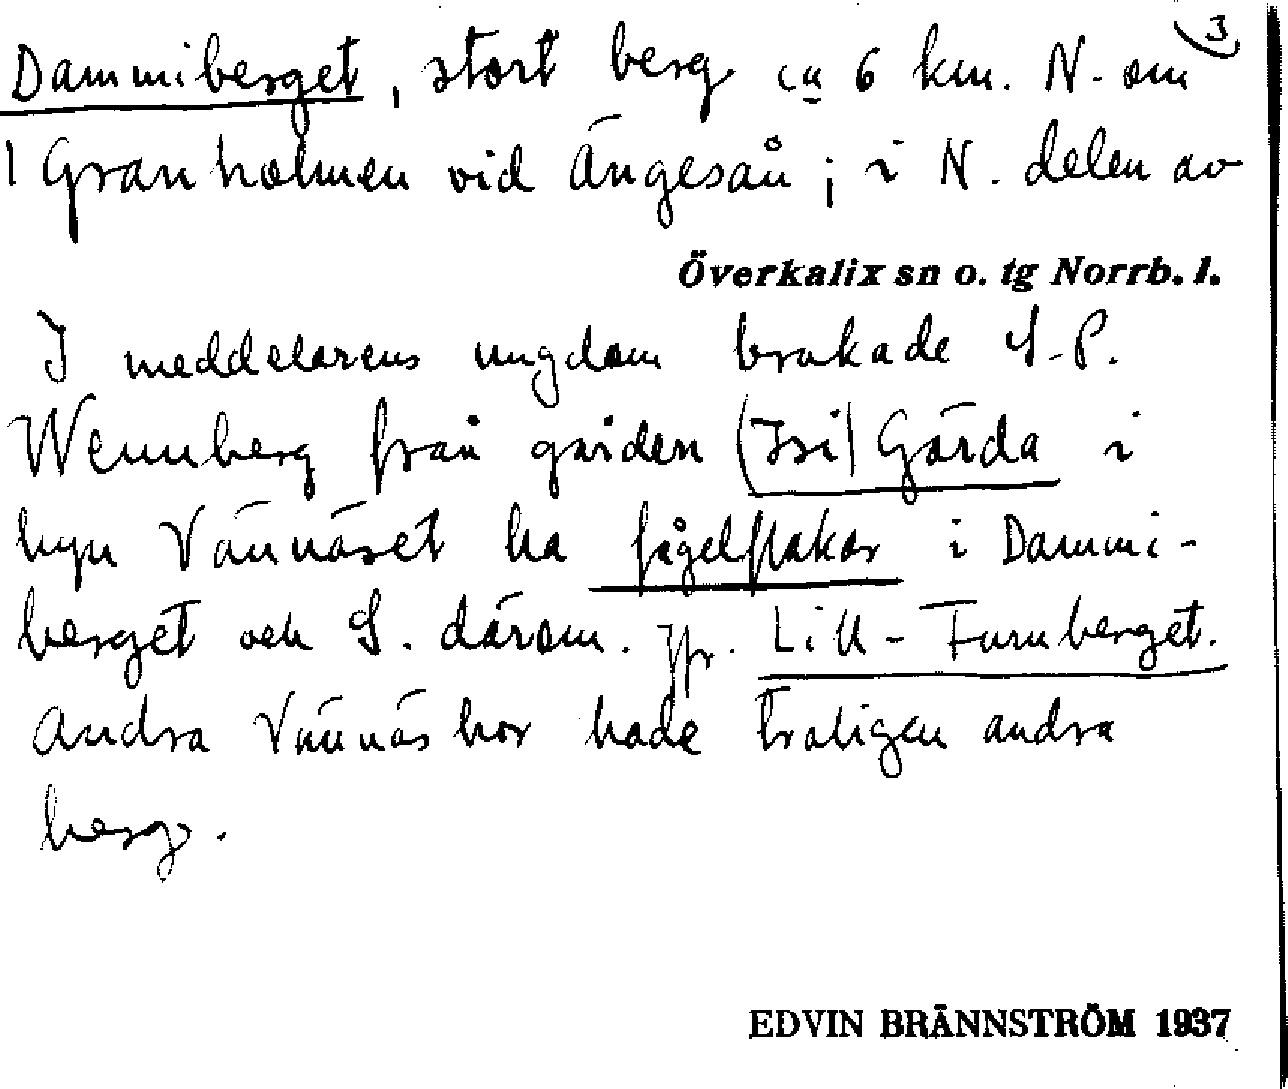 3
Dammiberget, stort berg ca 6 km. N. om
1 Granholmen vid Ängesån; i N. delen av
Överkalix sn o. tg Norrb. l.
I meddelarens ungdom brukade I.P.
Wennberg från gården (Isi) Gärda i
byn Vännäset ha fågelflakar i Dammi-
berget och S. därom. Jfr. Lill-Furuberget.
Andra Vännäsbor hade troligen andra
berg.
EDVIN BRÄNNSTRÖM 1937